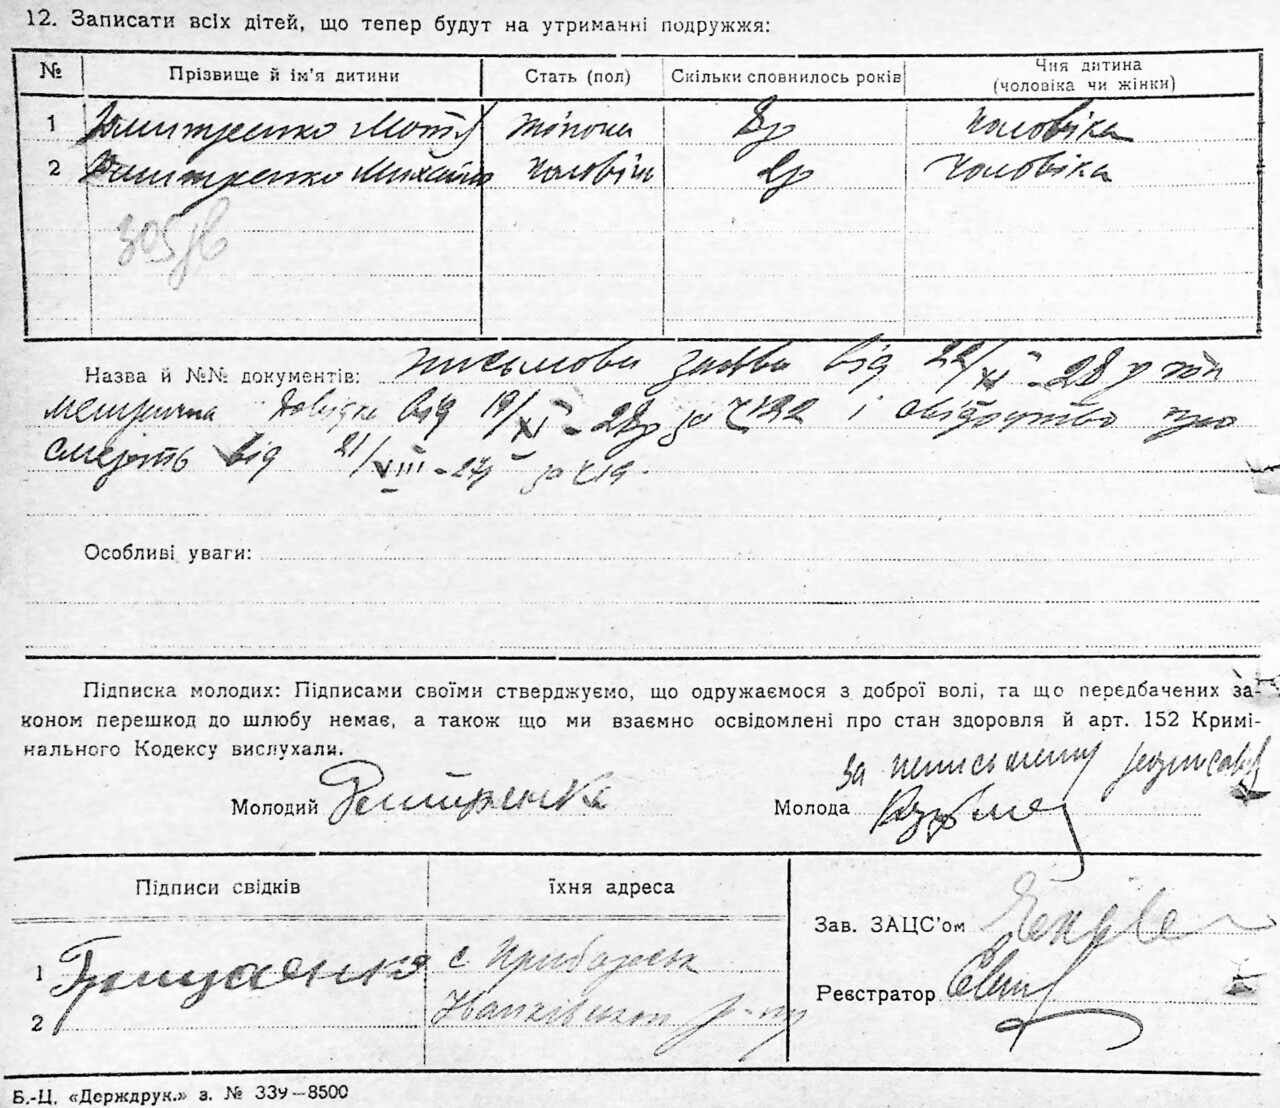 12. Записати всіх дітей, що тепер будут на утриманні подружжя:
№ Прізвище й ім'я дитини Стать (пол) Скільки сповнилось років Чия дитина (чоловіка чи жінки)
1 Дмитренко Мотя жіноча 8р чоловіка
2 Дмитренко Михайло чоловіч 2р чоловіка
305
Назва й №№ документів: письмова заява від 22/XI - 28 р
метрична довідка від 19/XI - 28р за і свідоцтво про
смерть від 21/VIII - 27р за №19.
Особливі уваги:
Підписка молодих: Підписами своїми стверджуємо, що одружаємося з доброї волі, та що передбачених за-
коном перешкод до шлюбу немає, а також що ми взаємно освідомлені про стан здоровля й арт. 152 Кримі-
нального Кодексу вислухали.
за неписьменну
Молодий Дмитренко Молода
Підписи свідків їхня адреса
Зав. ЗАЦС'ом
1 Грищенко с
Реєстратор
2 Іванківськ р-ну
Б.-Ц. «Держдрук.» з. № 339—8500